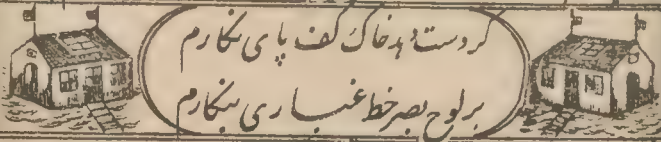 گر دست دهد خاک کف پای نگارم
بر لوح بصر خط غباری بنگارم